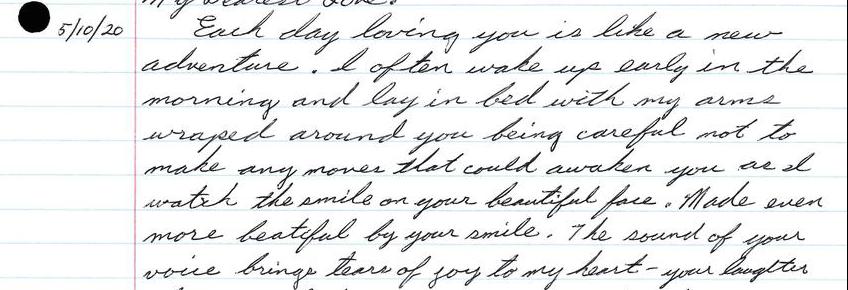 My Dearest Love:
5/10/20 Each day loving you is like a new
adventure. I often wake up early in the
morning and lay in bed with my arms
wraped around you being careful not to
make any moves that could awaken you as I
watch the smile on your beautiful face. Made even
more beatiful by your smile. The sound of your
voice brings tears of joy to my heart - your laughter